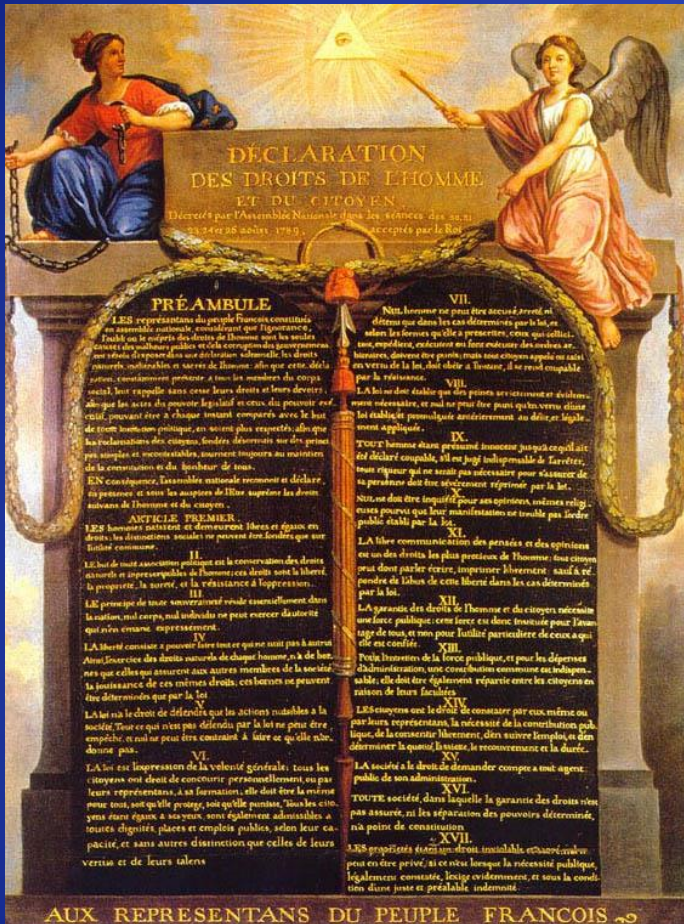 DÉCLARATION
DES DROITS DE L'HOMME
ET DU CITOYEN,
Décretés par l'Assemblée Nationale dans les séances des 20, 21
23, 24 et 26 août 1789, acceptés par le Roi
PRÉAMBULE
LES représentans du peuple François constitués
en assemblée nationale, considérant que l'ignorance,
l'oubli ou le mépris des droits de l'homme sont les seules
causes des malheurs publics et de la corruption des gouvernemens
ont résolu d'exposer dans une déclaration solemnelle, les droits
naturels, inaliénables et sacrés de l'homme; afin que cette décla
ration, constamment présente à tous les membres du corps
social, leur rappelle sans cesse leurs droits et leurs devoirs;
afin que les actes du pouvoir législatif et ceux du pouvoir exé
cutif, pouvant être à chaque instant comparés avec le but
de toute institution politique, en soient plus respectés; afin que
les réclamations des citoyens, fondées désormais sur des princi
pes simples et incontestables, tournent toujours au maintien
de la constitution et du bonheur de tous.
EN conséquence, l'assemblée nationale reconnoit et déclare,
en présence et sous les auspices de l'Etre suprême les droits
suivans de l'homme et du citoyen.
ARTICLE PREMIER.
LES hommes naissent et demeurent libres et égaux en
droits; les distinctions sociales ne peuvent être fondées que sur
l'utilité commune.
II.
LE but de toute association politique est la conservation des droits
naturels et imprescriptibles de l'homme; ces droits sont la liberté,
la propriété, la sureté, et la résistance à l'oppression.
III.
LE principe de toute souveraineté réside essentiellement dans
la nation, nul corps, nul individu ne peut exercer d'autorité
qui n'en émane expressement.
IV.
LA liberté consiste à pouvoir faire tout ce qui ne nuit pas à autrui
Ainsi, l'exercice des droits naturels de chaque homme, n'a de bor
nes que celles qui assurent aux autres membres de la société
la jouissance de ces mêmes droits; ces bornes ne peuvent
être déterminées que par la loi
V.
LA loi n'a le droit de défendre que les actions nuisibles à la
société. Tout ce qui n'est pas défendu par la loi ne peut être
empêché, et nul ne peut être contraint à faire ce qu'elle n'or
donne pas.
VI.
LA loi est l'expression de la volonté générale; tous les
citoyens ont droit de concourir personnellement, ou par
leurs représentans, à sa formation; elle doit être la même
pour tous, soit qu'elle protege, soit qu'elle punisse. Tous les cito
yens étant égaux à ses yeux, sont également admissibles à
toutes dignités, places et emplois publics, selon leur ca
pacité, et sans autres distinction que celles de leurs
vertus et de leurs talens
VII.
NUL homme ne peut être accusé, arreté, ni
détenu que dans les cas déterminés par la loi, et
selon les formes qu'elle a prescrites, ceux qui sollici
tent, expédient, exécutent ou font exécuter des ordres ar
bitraires, doivent être punis; mais tout citoyen appelé ou saisi
en vertu de la loi, doit obéir à l'instant, il se rend coupable
par la résistance.
VIII.
LA loi ne doit établir que des peines strictement et évidem
ment nécessaires, et nul ne peut être puni qu'en vertu d'une
loi établie et promulguée antérieurement au délit, et légale
ment appliquée.
IX.
TOUT homme étant présumé innocent jusqu'à ce qu'il ait
été déclaré coupable, s'il est jugé indispensable de l'arrêter,
toute rigueur qui ne serait pas nécessaire pour s'assurer de
sa personne doit être sévèrement réprimée par la loi.
X.
NUL ne doit être inquiété pour ses opinions, mêmes religi
euses pourvu que leur manifestation ne trouble pas l'ordre
public établi par la loi.
XI.
LA libre communication des pensées et des opinions
est un des droits les plus précieux de l'homme; tout citoyen
peut donc parler, écrire, imprimer librement: sauf à ré
pondre de l'abus de cette liberté dans les cas déterminés
par la loi.
XII.
LA garantie des droits de l'homme et du citoyen nécessite
une force publique; cette force est donc instituée pour l'avan
tage de tous, et non pour l'utilité particuliere de ceux a qui
elle est confiée.
XIII.
POUR l'entretien de la force publique, et pour les dépenses
d'administration, une contribution commune est indispen
sable; elle doit être également répartie entre les citoyens en
raison de leurs facultées
XIV.
LES citoyens ont le droit de constater par eux même ou
par leurs représentans, la nécessité de la contribution pub
lique, de la consentir librement, d'en suivre l'emploi, et d'en
déterminer la quotité, l'assiette, le recouvrement et la durée.
XV.
LA société a le droit de demander compte a tout agent
public de son administration.
XVI.
TOUTE société, dans laquelle la garantie des droits n'est
pas assurée, ni les séparation des pouvoirs déterminée,
n'a point de constitution
XVII.
LES propriétés étant un droit inviolable et sacré, nul ne
peut en être privé, si ce n'est lorsque la nécessité publique,
légalement constatée, l'exige evidemment, et sous la condi
tion d'une juste et préalable indemnité
AUX REPRESENTANS DU PEUPLE FRANCOIS